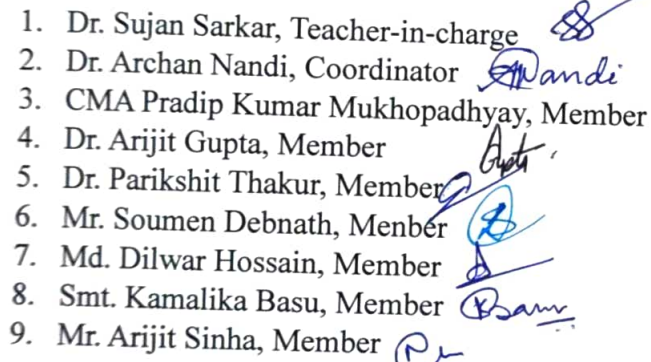 1. Dr. Sujan Sarkar, Teacher-in-charge
2. Dr. Archan Nandi, Coordinator Nandi
3. CMA Pradip Kumar Mukhopadhyay, Member
4. Dr. Arijit Gupta, Member Gupta
5. Dr. Parikshit Thakur, Member
6. Mr. Soumen Debnath, Menber
7. Md. Dilwar Hossain, Member
8. Smt. Kamalika Basu, Member KBasu
9. Mr. Arijit Sinha, Member